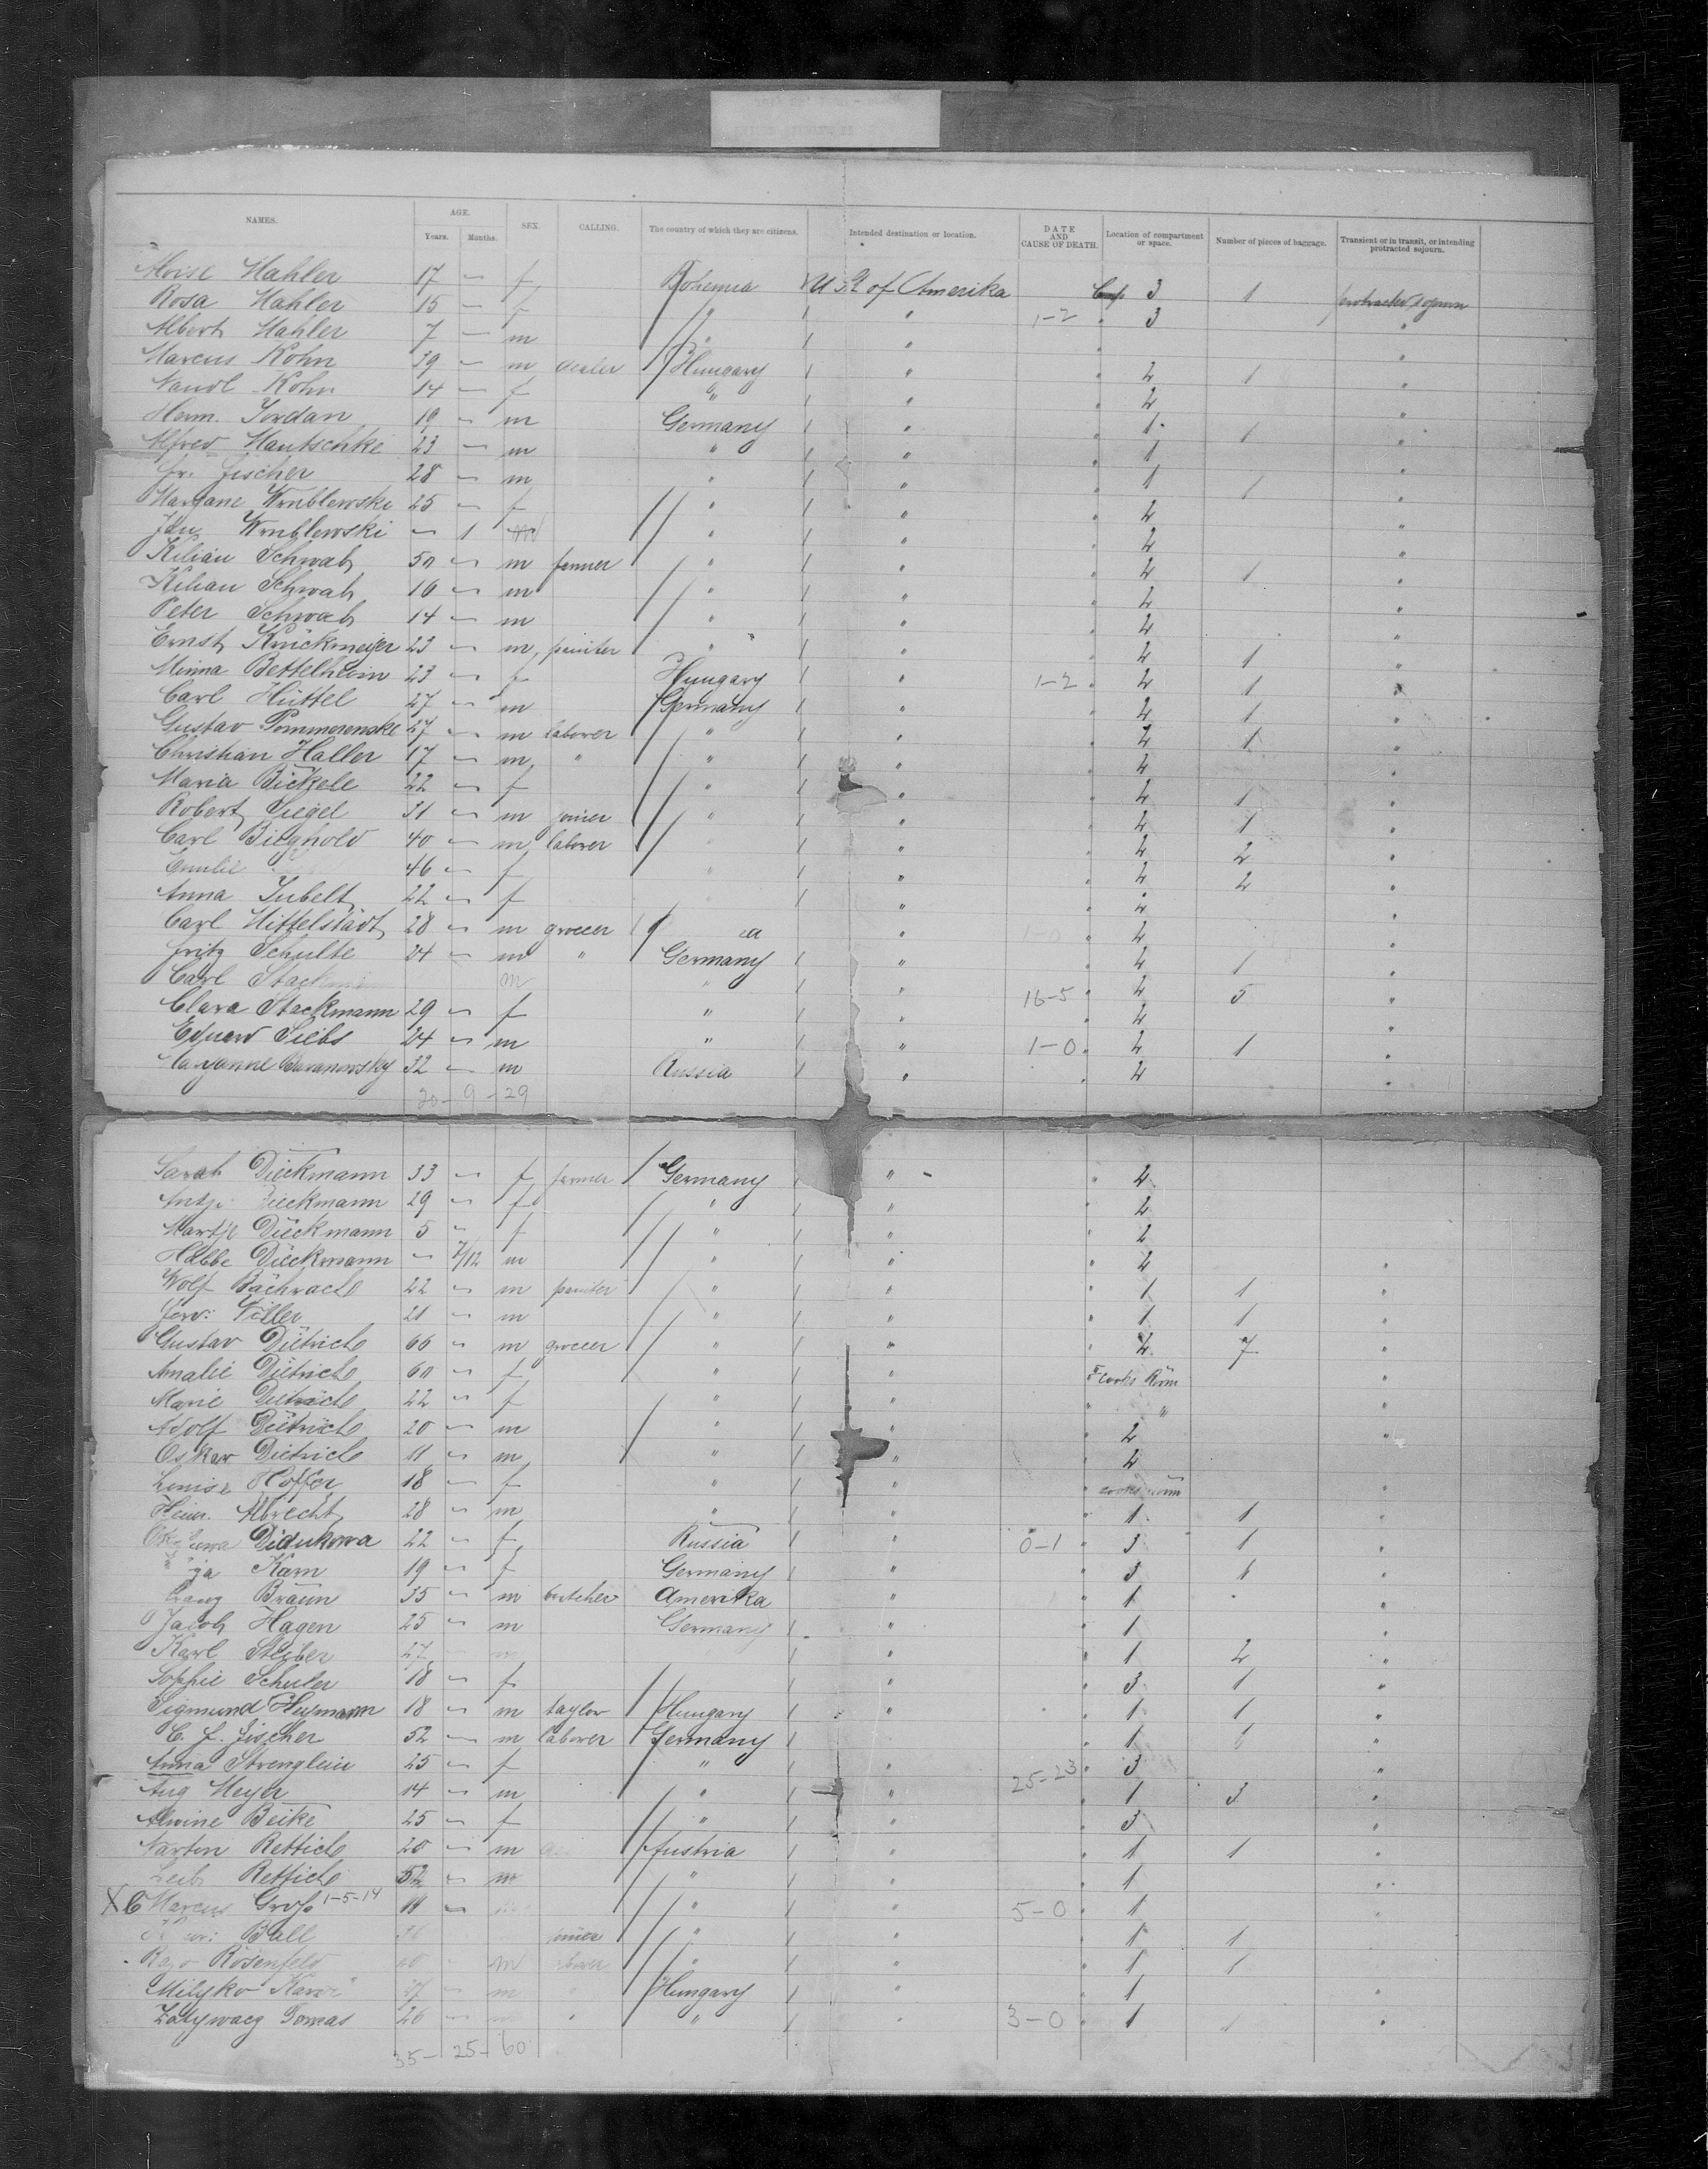 NAMES. AGE. Years. Months. SEX. CALLING. The country of which they are citizens. Intended destination or location. DATE AND CAUSE OF DEATH. Location of compartment or space. Number of pieces of baggage. Transient or in transit, or intending protracted sojourn.
Hahler 17 - f Bohemia U S of Amerika Comp 3 1 protracted sojourn
Rosa Hahler 15 - f " " 1-2 " 3 "
Albert Hahler 7 - m " " " "
Marcus Kohn 39 - m dealer Hungary " " 4 1 "
Kohn 14 - f " " " 4 "
Herm. Jordan 19 - m Germany " " 1 1 "
Alfred Hantschke 23 - m " " " 1 "
Fr. Fischer 28 - m " " " 1 1 "
Wrublewski 25 - f " " " 4 "
Wrublewski - 1 m " " " 4 "
Kilian Schwab 50 - m farmer " " " 4 1 "
Kilian Schwab 16 - m " " " 4 "
Peter Schwab 14 - m " " " 4 "
Ernst Knickmeijer 23 - m painter " " " 4 1 "
Minna Bettelheim 23 - f Hungary " 1-2 " 4 1 "
Carl Hüttel 27 - m Germany " " 4 1 "
Gustav Pommerenske 27 - m laborer " " " 4 1 "
Christian Haller 17 - m " " " " 4 "
Maria Bickele 22 - f " " " 4 1 "
Robert Siegel 31 - m joiner " " " 4 1 "
Carl Bieghold 40 - m laborer " " " 4 2 "
Emilie 46 - f " " " 4 2 "
Anna Jubelt 22 - f " " " 4 "
Carl Mittelstädt 28 - m grocer a " " 4 "
Fritz Schulte 24 - m " Germany " " 4 1 "
Carl m " " " 4 5 "
Clara Stackmann 29 - f " " 16-5 " 4 "
Eduard Siebs 24 - m " " 1-0 " 4 1 "
32 - m Russia " " 4 "
20-9-29
Sarah Dieckmann 33 - f farmer Germany " " 4
Dieckmann 29 - f " " " 4
Martje Dieckmann 5 - f " " " 4
Habbe Dieckmann - 7/12 m " " " 4 "
Wolf Bachrach 22 - m painter " " " 1 1 "
Ferd. 21 - m " " " 1 1 "
Gustav Dietrich 66 - m grocer " " " 4 7 "
Amalie Dietrich 60 - f " " " cooks Room "
Marie Dietrich 22 - f " " " " "
Adolf Dietrich 20 - m " " " 4 "
Oskar Dietrich 11 - m " " " 4
Louise Hoffer 18 - f " " " cooks room "
Heinr. Albrecht 28 - m " " " 1 1 "
Didukowa 22 - f Russia " 0-1 " 3 1 "
Karn 19 - f Germany " " 3 1 "
Braun 35 - m butcher Amerika " " 1 "
Jacob Hagen 25 - m Germany " " 1 "
Karl Steiber 27 " 1 2 "
Sophie Schuler 18 - f " 3 1 "
Sigmund Heymann 18 - m taylor Hungary " " 1 1 "
C. F. Fischer 52 - m laborer Germany " 1 "
Anna Strenglein 25 - f " " 25-23 " 3 "
Aug Meyer 14 - m " " " 1 3 "
Alwine Beike 25 - f " " " 3 "
Rettich 20 - m Austria " " 1 1 "
Leib Rettich 52 - m " " " 1 "
X6 Marcus Groß 1-5-14 11 - " " 5-0 " 1 "
Ball " " " 1 1 "
Rosenfeld m " " " 1 1 "
Milyko m " Hungary " " 1 "
Tomas 26 - " " " 3-0 " 1 "
35-25-60